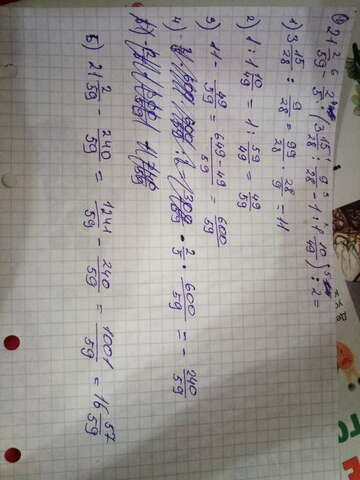 21 2/59 - 2/5 · (3 15/28 : 9/28 - 1 : 1 10/49) : 2 =
1) 3 15/28 : 9/28 = 99/28 · 28/9 = 11
2) 1 : 1 10/49 = 1 : 59/49 = 49/59
3) 11 - 49/59 = 649-49/59 = 600/59
4) - 2/5 · 600/59 = - 240/59
5) 21 2/59 - 240/59 = 1241/59 - 240/59 = 1001/59 = 16 57/59